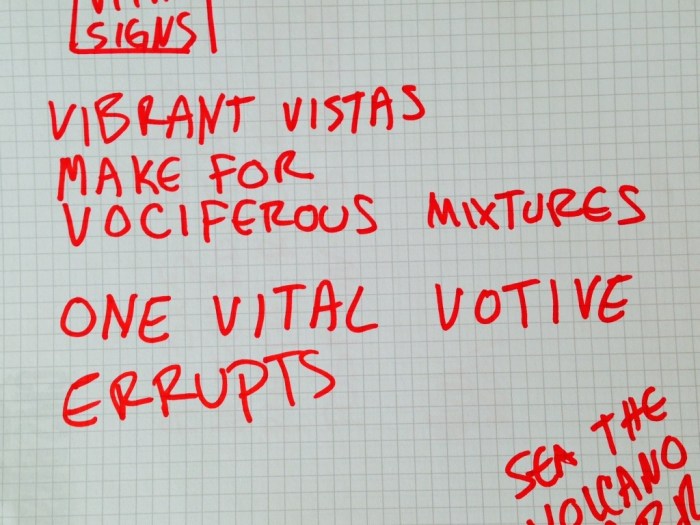 SIGNS
VIBRANT VISTAS
MAKE FOR
VOCIFEROUS MIXTURES
ONE VITAL VOTIVE
ERRUPTS
SEA THE
VOLCANO